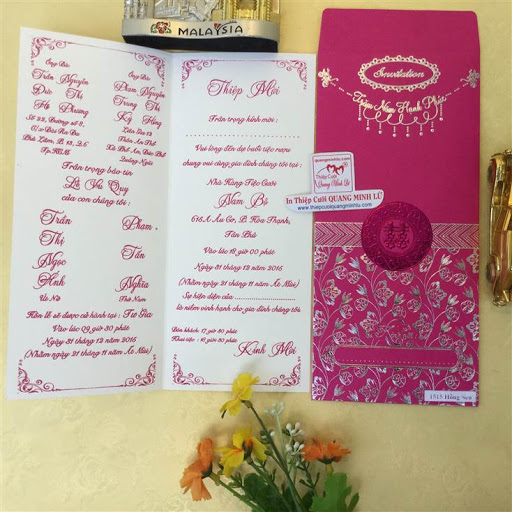 MALAYSIA
Ông Bà:
Trần Nguyễn
Đức Thị
Hà Phương
Số 23, Đường số 8,
Phú Lâm, P. 12, Q. 6
Tp.HCM
Ông Bà:
Phạm Phạm
Trung Thị
Kỳ Hồng
Liên Gia 13
Thôn An Thổ
Quảng Ngãi
Trân trọng báo tin
Lễ Vu Quy
của con chúng tôi:
Trần Phạm
Thị
Ngọc Tấn
Anh Nghĩa
Út Nữ Thứ Nam
Hôn lễ sẽ được cử hành tại: Tư Gia
Vào lúc 09 giờ 30 phút
Ngày 31 tháng 12 năm 2015
(Nhằm ngày 21 tháng 11 năm Ất Mùi)
Thiệp Mời
Trân trọng kính mời:
Vui lòng đến dự buổi tiệc rượu
chung vui cùng gia đình chúng tôi tại:
Nhà Hàng Tiệc Cưới
Nam Bộ
616A Âu Cơ, P. Hòa Thạnh,
Tân Phú
Vào lúc 18 giờ 00 phút
Ngày 31 tháng 12 năm 2015
(Nhằm ngày 21 tháng 11 năm Ất Mùi)
Sự hiện diện của
là niềm vinh hạnh cho gia đình chúng tôi.
Đón khách: 17 giờ 30 phút
Khai tiệc: 18 giờ 30 phút
Kính Mời
Invitation
Trăm Năm Hạnh Phúc
quangminhlu.com
Thiệp Cưới
Quang Minh Lữ
In Thiệp Cưới QUANG MINH LỮ
www.thiepcuoiquangminhlu.com
囍
1515 Hồng Sen